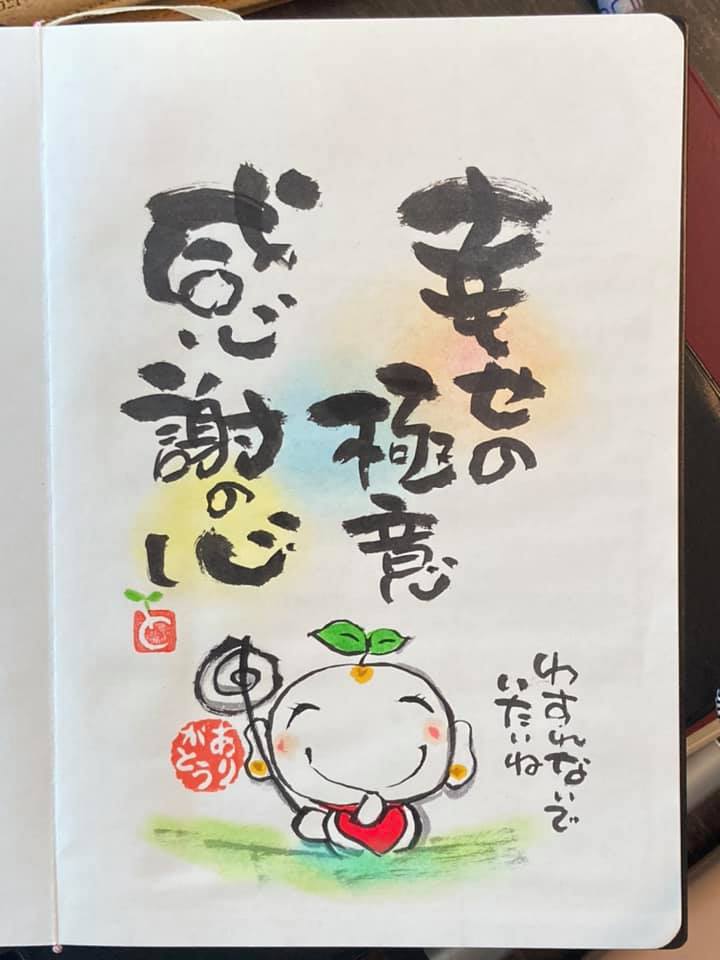 幸せの
極意
感謝の心
わすれないで
いたいね
ありがとう
と